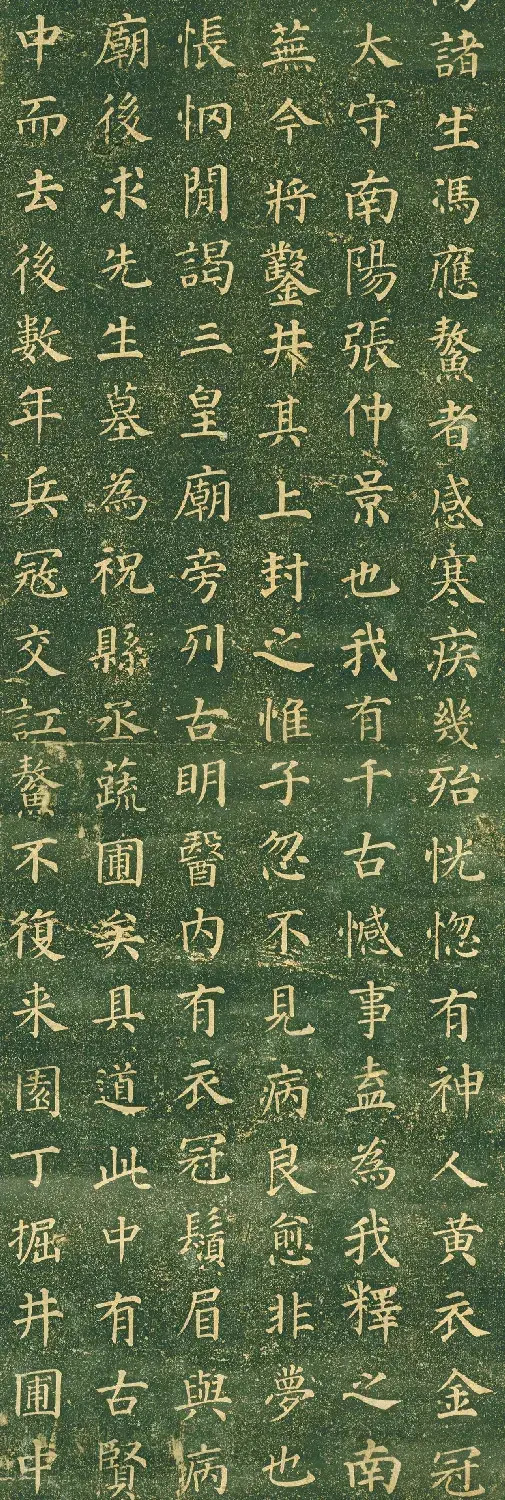 諸生馮應鰲者感寒疾幾殆恍惚有神人黄衣金冠
太守南陽張仲景也我有千古憾事盍為我釋之南
蕪今將鑿井其上封之惟子忽不見病良愈非夢也
悵惘閒謁三皇廟旁列古明醫内有衣冠鬚眉與病
廟後求先生墓為祝縣丞蔬圃矣具道此中有古賢
中而去後數年兵冦交訌鰲不復来園丁掘井圃中